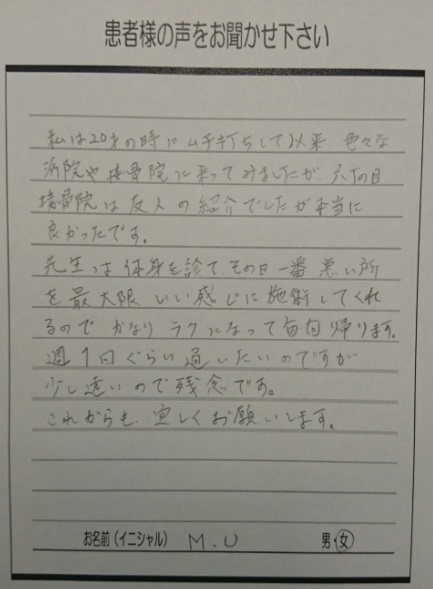 患者様の声をお聞かせ下さい
私は20才の時にムチ打ちして以来 色々な
病院や接骨院に来ってみましたが、
接骨院は友人の紹介でしたが本当に
良かったです。
先生は体身を診て、その日一番悪い所
を最大限いい感じに施術してくれ
るので かなり ラクになって毎回帰ります。
週1日ぐらい通いたいのですが
少し遠いので残念です。
これからも 宜しくお願いします。
お名前(イニシャル) M.U 男・女